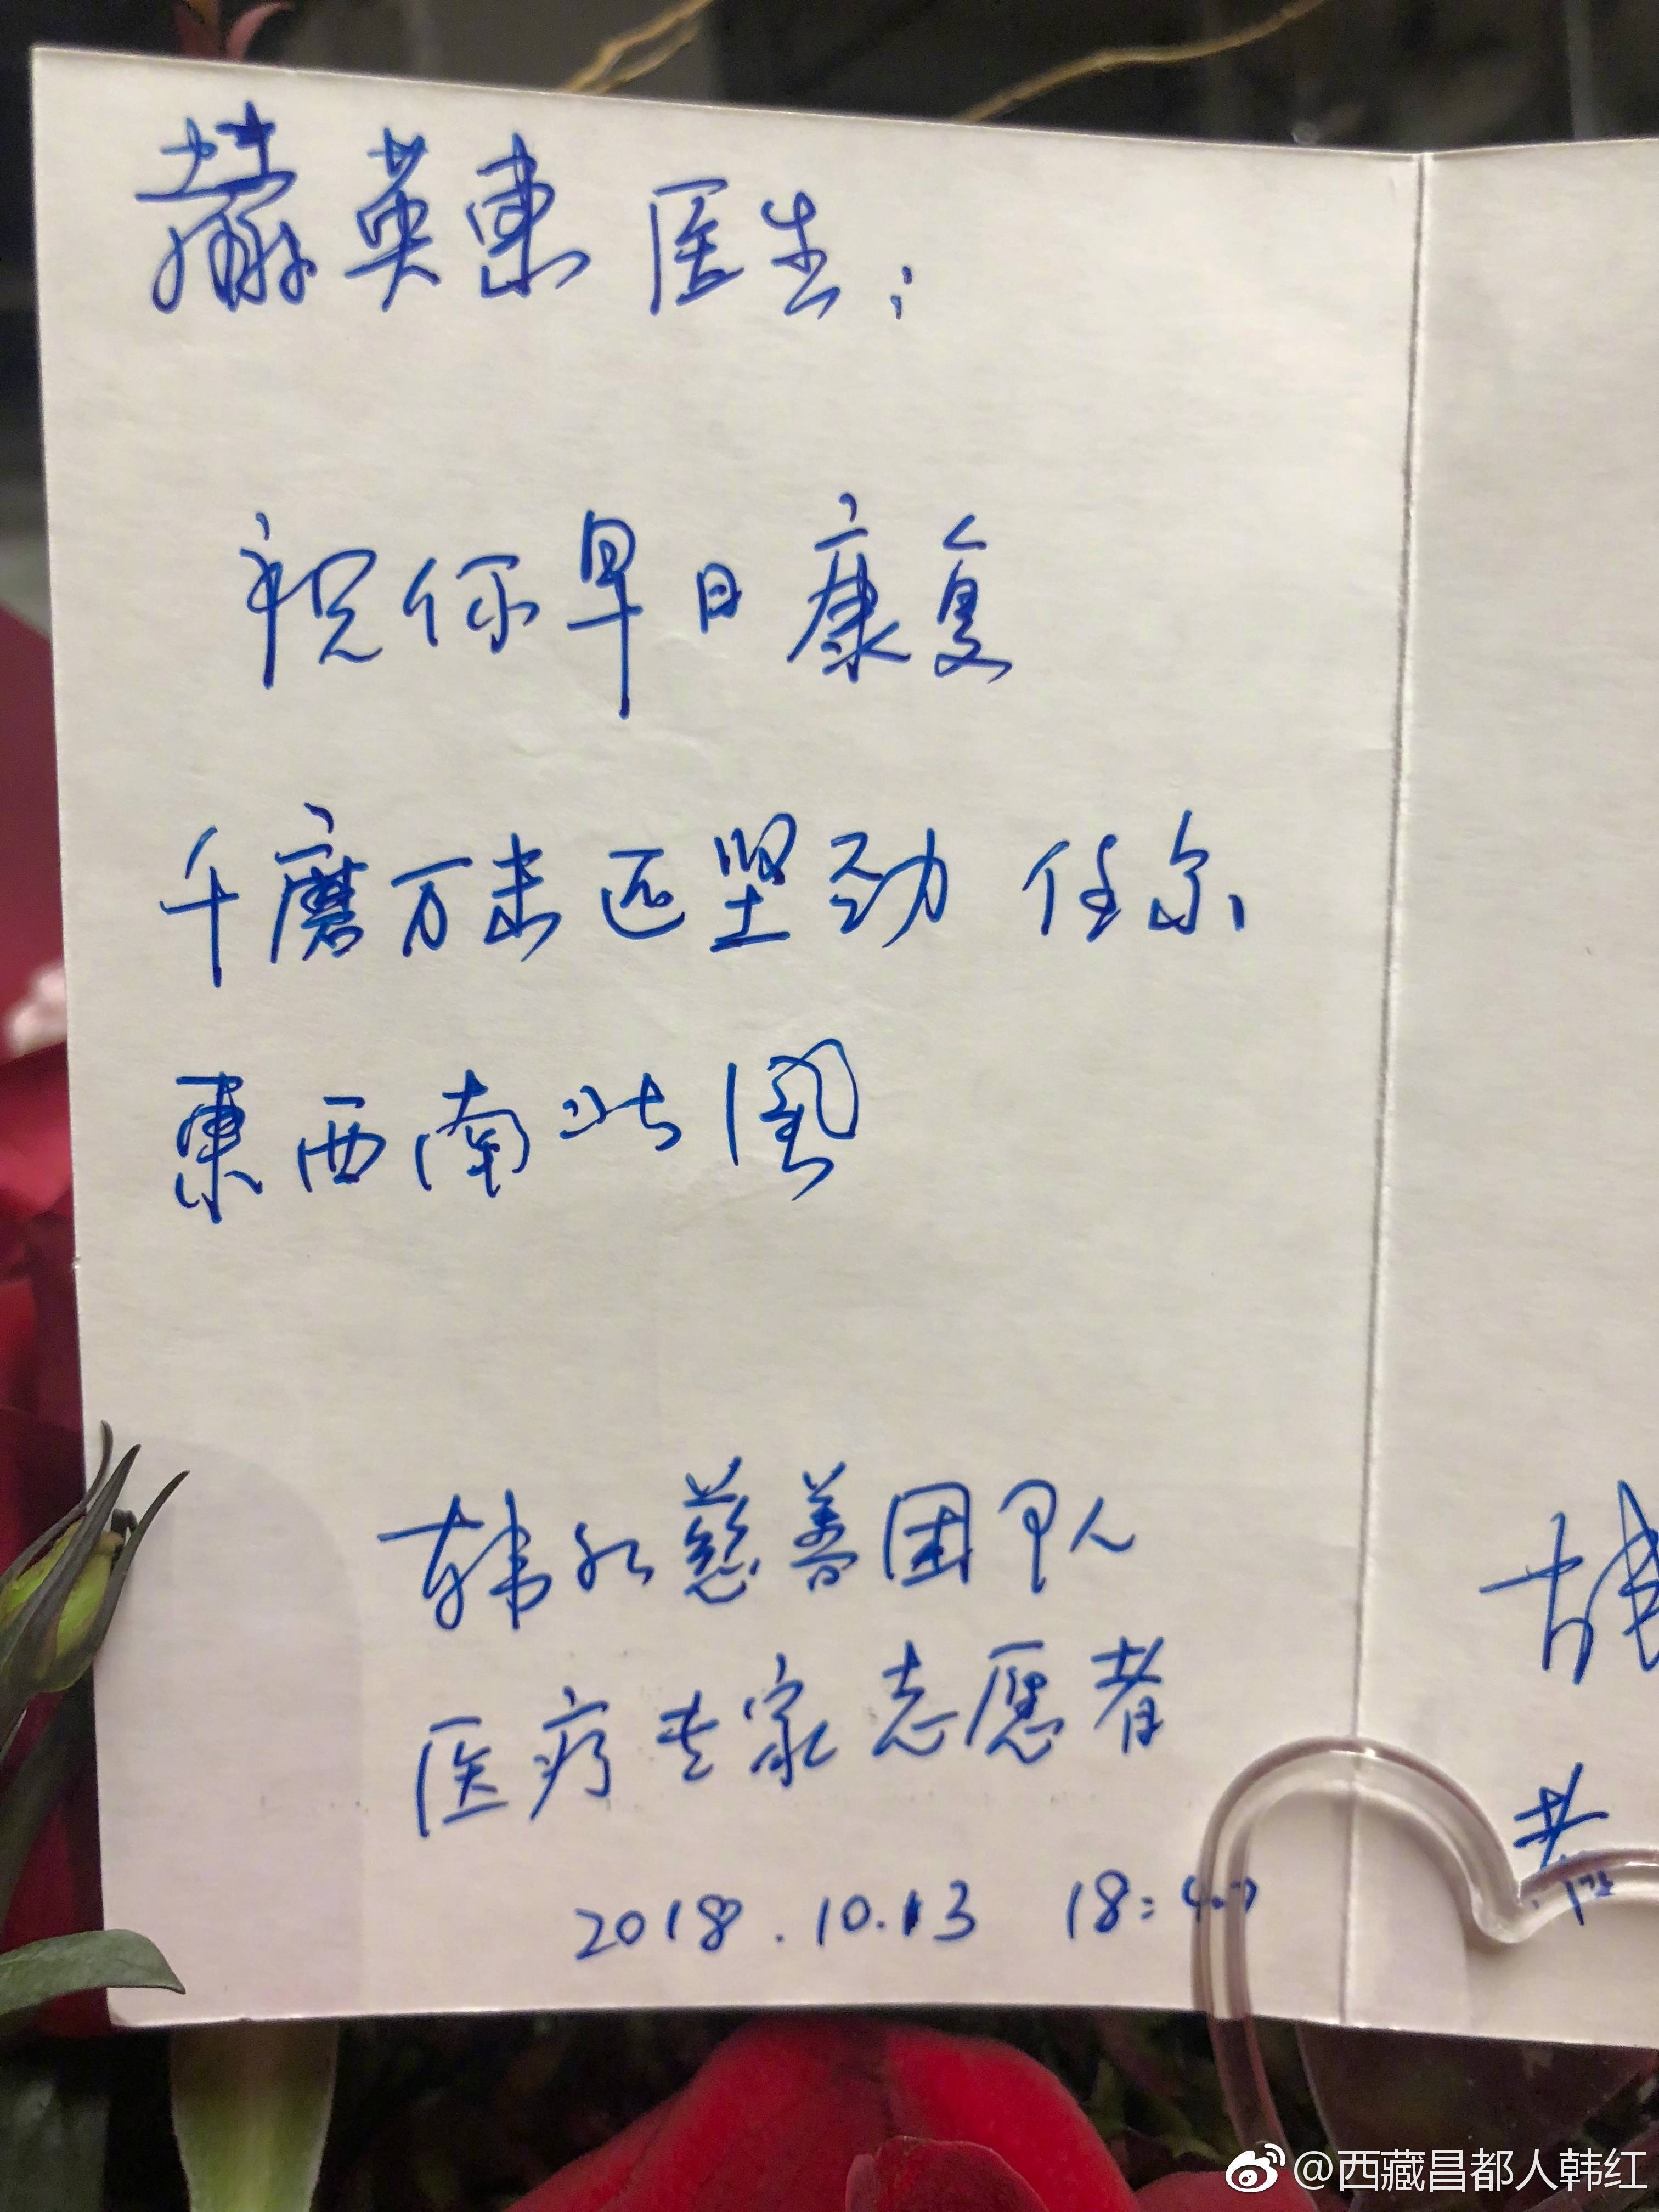 赫英東 医生：
祝你早日康复
千磨万击还坚劲 任尔
東西南北風
韩红慈善团队
医疗专家志愿者
2018.10.13 18:
@西藏昌都人韩红